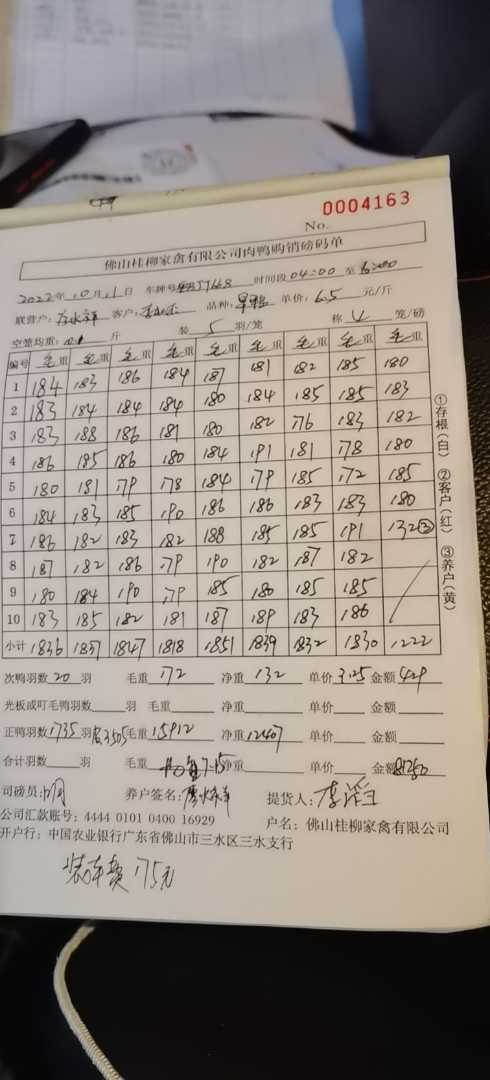 0004163
No.
佛山桂柳家禽有限公司肉鸭购销磅码单
2022年10月11日 车牌号 时间段04:00至6:00
联营户: 客户: 品种: 单价:6.5元/斤
空笼均重: 斤 装5羽/笼 称4笼/磅
编号 毛重 毛重 毛重 毛重 毛重 毛重 毛重 毛重 毛重
1 184 183 186 184 187 181 182 185 180
2 183 184 184 184 180 184 185 185 183
3 183 188 186 181 180 182 176 183 182
4 186 185 186 180 184 191 181 178 180
5 180 181 179 178 184 179 185 172 185
6 184 183 185 190 186 186 183 183 180
7 186 182 183 182 188 185 185 191 132
8 187 182 186 179 190 182 187 182
9 180 184 190 179 185 180 185 185
10 183 185 182 181 187 189 183 186
小计 1836 1837 1847 1818 1851 1839 1832 1830 1222
①存根(白) ②客户(红) ③养户(黄)
次鸭羽数20羽 毛重172 净重132 单价3.25 金额429
光板或叮毛鸭羽数 羽 毛重 净重 单价 金额
正鸭羽数1735羽 皮3505 毛重15912 净重12407 单价 金额
合计羽数 羽 毛重 净重 单价 金额
司磅员: 养户签名: 提货人:
公司汇款账号: 4444 0101 0400 16929 户名: 佛山桂柳家禽有限公司
开户行: 中国农业银行广东省佛山市三水区三水支行
装车费175元